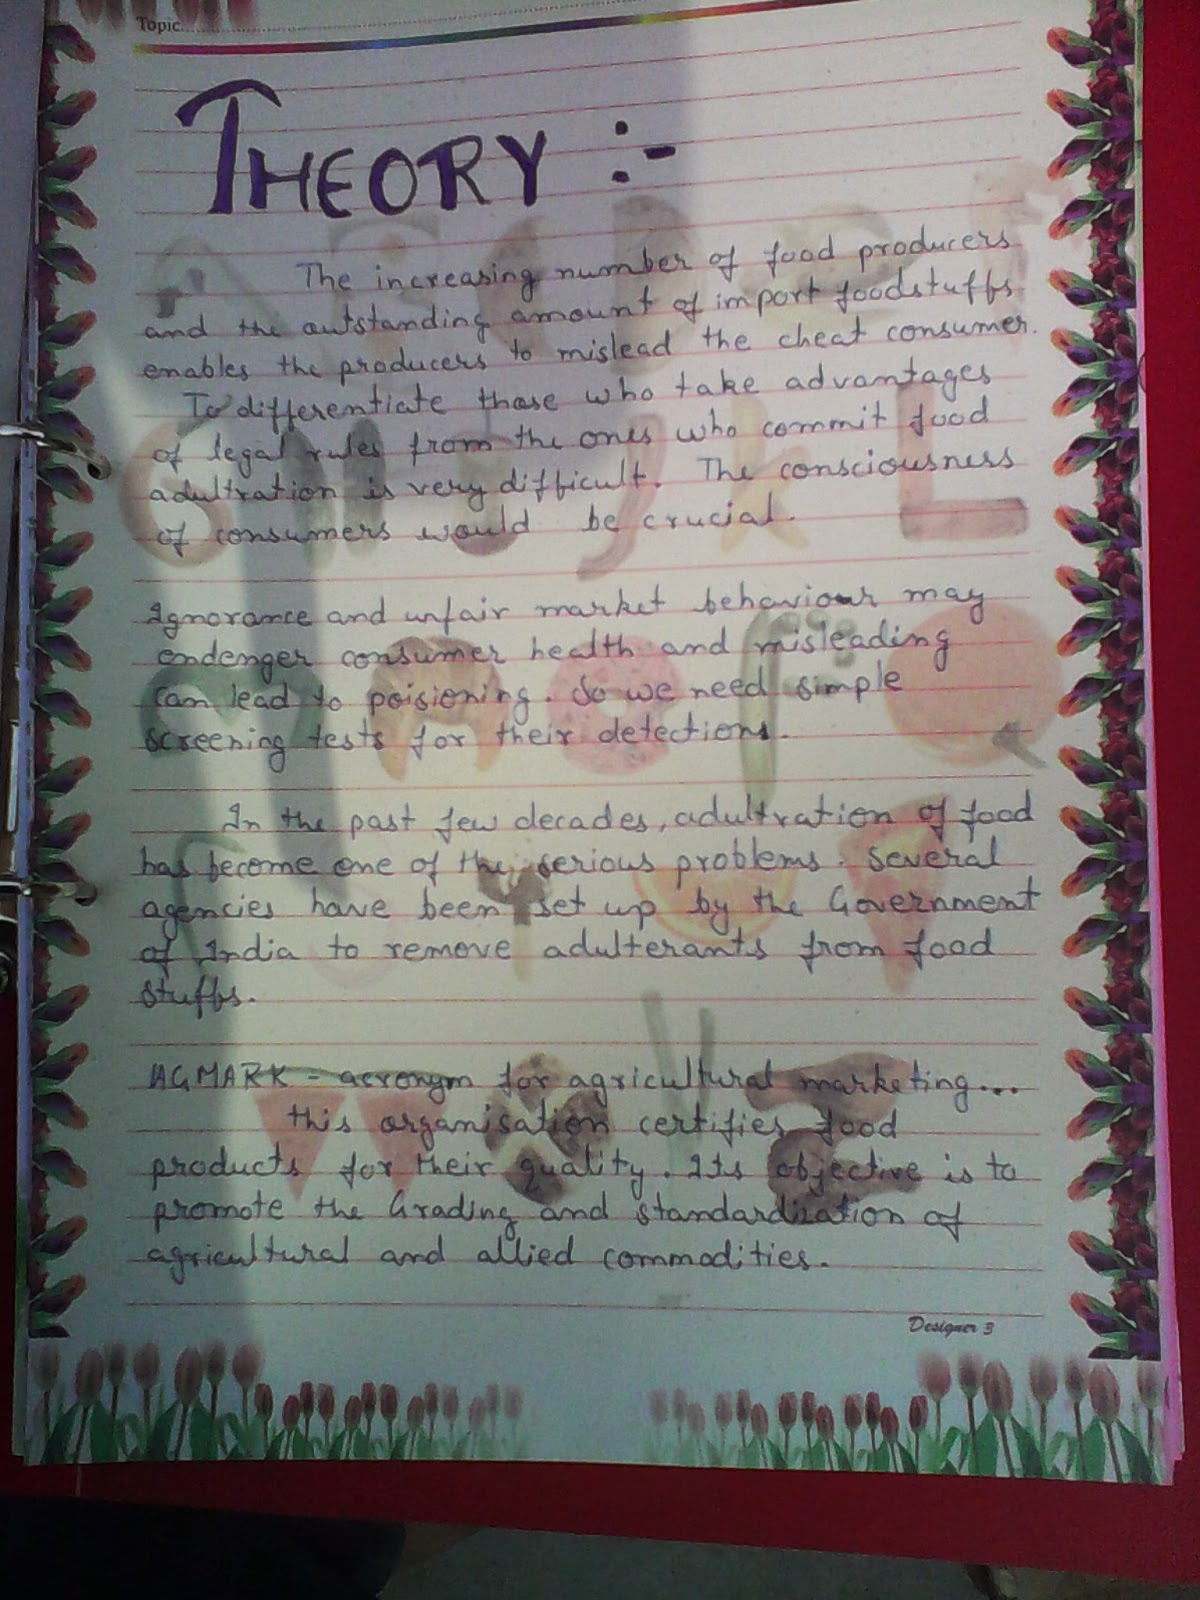 Topic
THEORY :-
The increasing number of food producers
and the outstanding amount of import foodstuffs
enables the producers to mislead the cheat consumer.
To differentiate those who take advantages
of legal rules from the ones who commit food
adultration is very difficult. The consciousness
of consumers would be crucial.
Ignorance and unfair market behaviour may
endenger consumer health and misleading
can lead to poisioning. So we need simple
screening tests for their detections.
In the past few decades, adultration of food
has become one of the serious problems. Several
agencies have been set up by the Government
of India to remove adulterants from food
stuffs.
AGMARK - acronym for agricultural marketing...
this organisation certifies food
products for their quality. Its objective is to
promote the Grading and standardization of
agricultural and allied commodities.
Designer 3